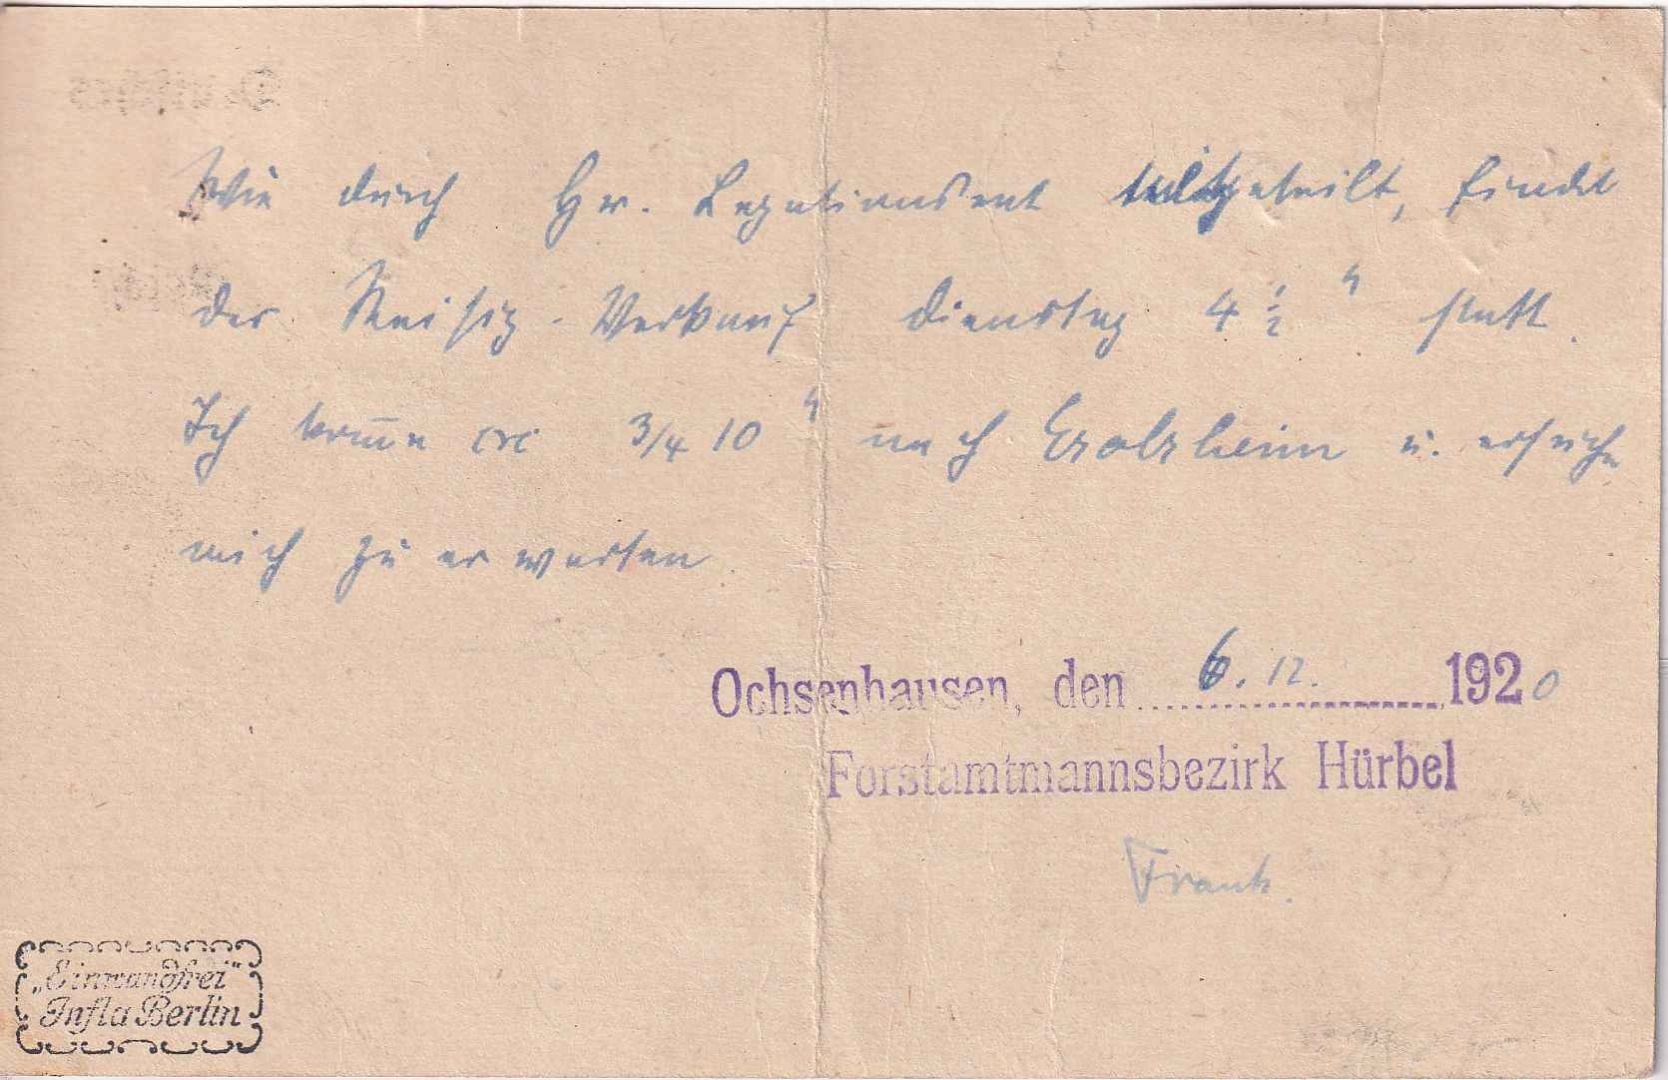 Wie durch Hr. Legationsrat mitgeteilt, findet
der Reisig-Verkauf Dienstag 4 1/2 h statt.
Ich komme 3/4 10 h nach Erolzheim u. ersuche
mich zu erwarten.
Ochsenhausen, den 6. 12. 1920
Forstamtmannsbezirk Hürbel
Frank.
„Einwandfrei"
Infla Berlin